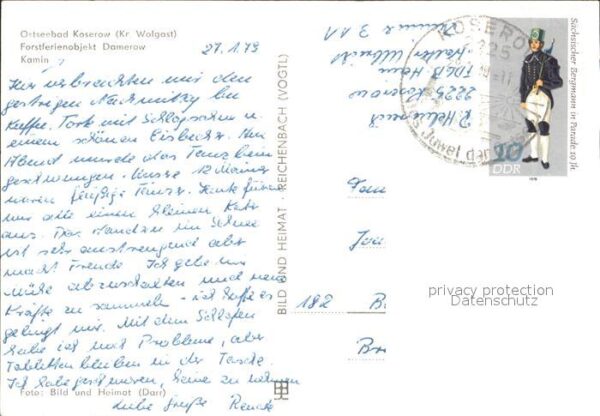 Ostseebad Koserow (Kr Wolgast)
Forstferienobjekt Damerow
Kamin
27.1.79
Hier verbrachten wir den
gestrigen Nachmittag bei
Kaffee, Torte mit Schlagsahne u.
einem schönen Eisbecher. Am
Abend wurde das Tanzbein
geschwungen. Unsere 12 Männer
waren fleißige Tänzer. Heute
wir alle einen kleinen Kater
aus. Das Wandern im Schnee
ist sehr anstrengend aber
macht Freude. Ich gebe mir
Mühe abzuschalten und neue
Kräfte zu sammeln - ich hoffe es
gelingt mir. Mit dem Schlafen
habe ich noch Probleme, aber
Tabletten bleiben in der Tasche.
Ich habe geschworen, keine zu nehmen
Liebe Grüße Renate
Foto: Bild und Heimat (Darr)
BILD UND HEIMAT · REICHENBACH (VOGTL)
FDGB-Heim
"Walter Ulbricht"
2225 Koserow
KOSERO
2225
Juwel der
Sächsischer Bergmann in Parade 19. Jh.
10
DDR
1978
Fam
182
B
privacy protection
Datenschutz